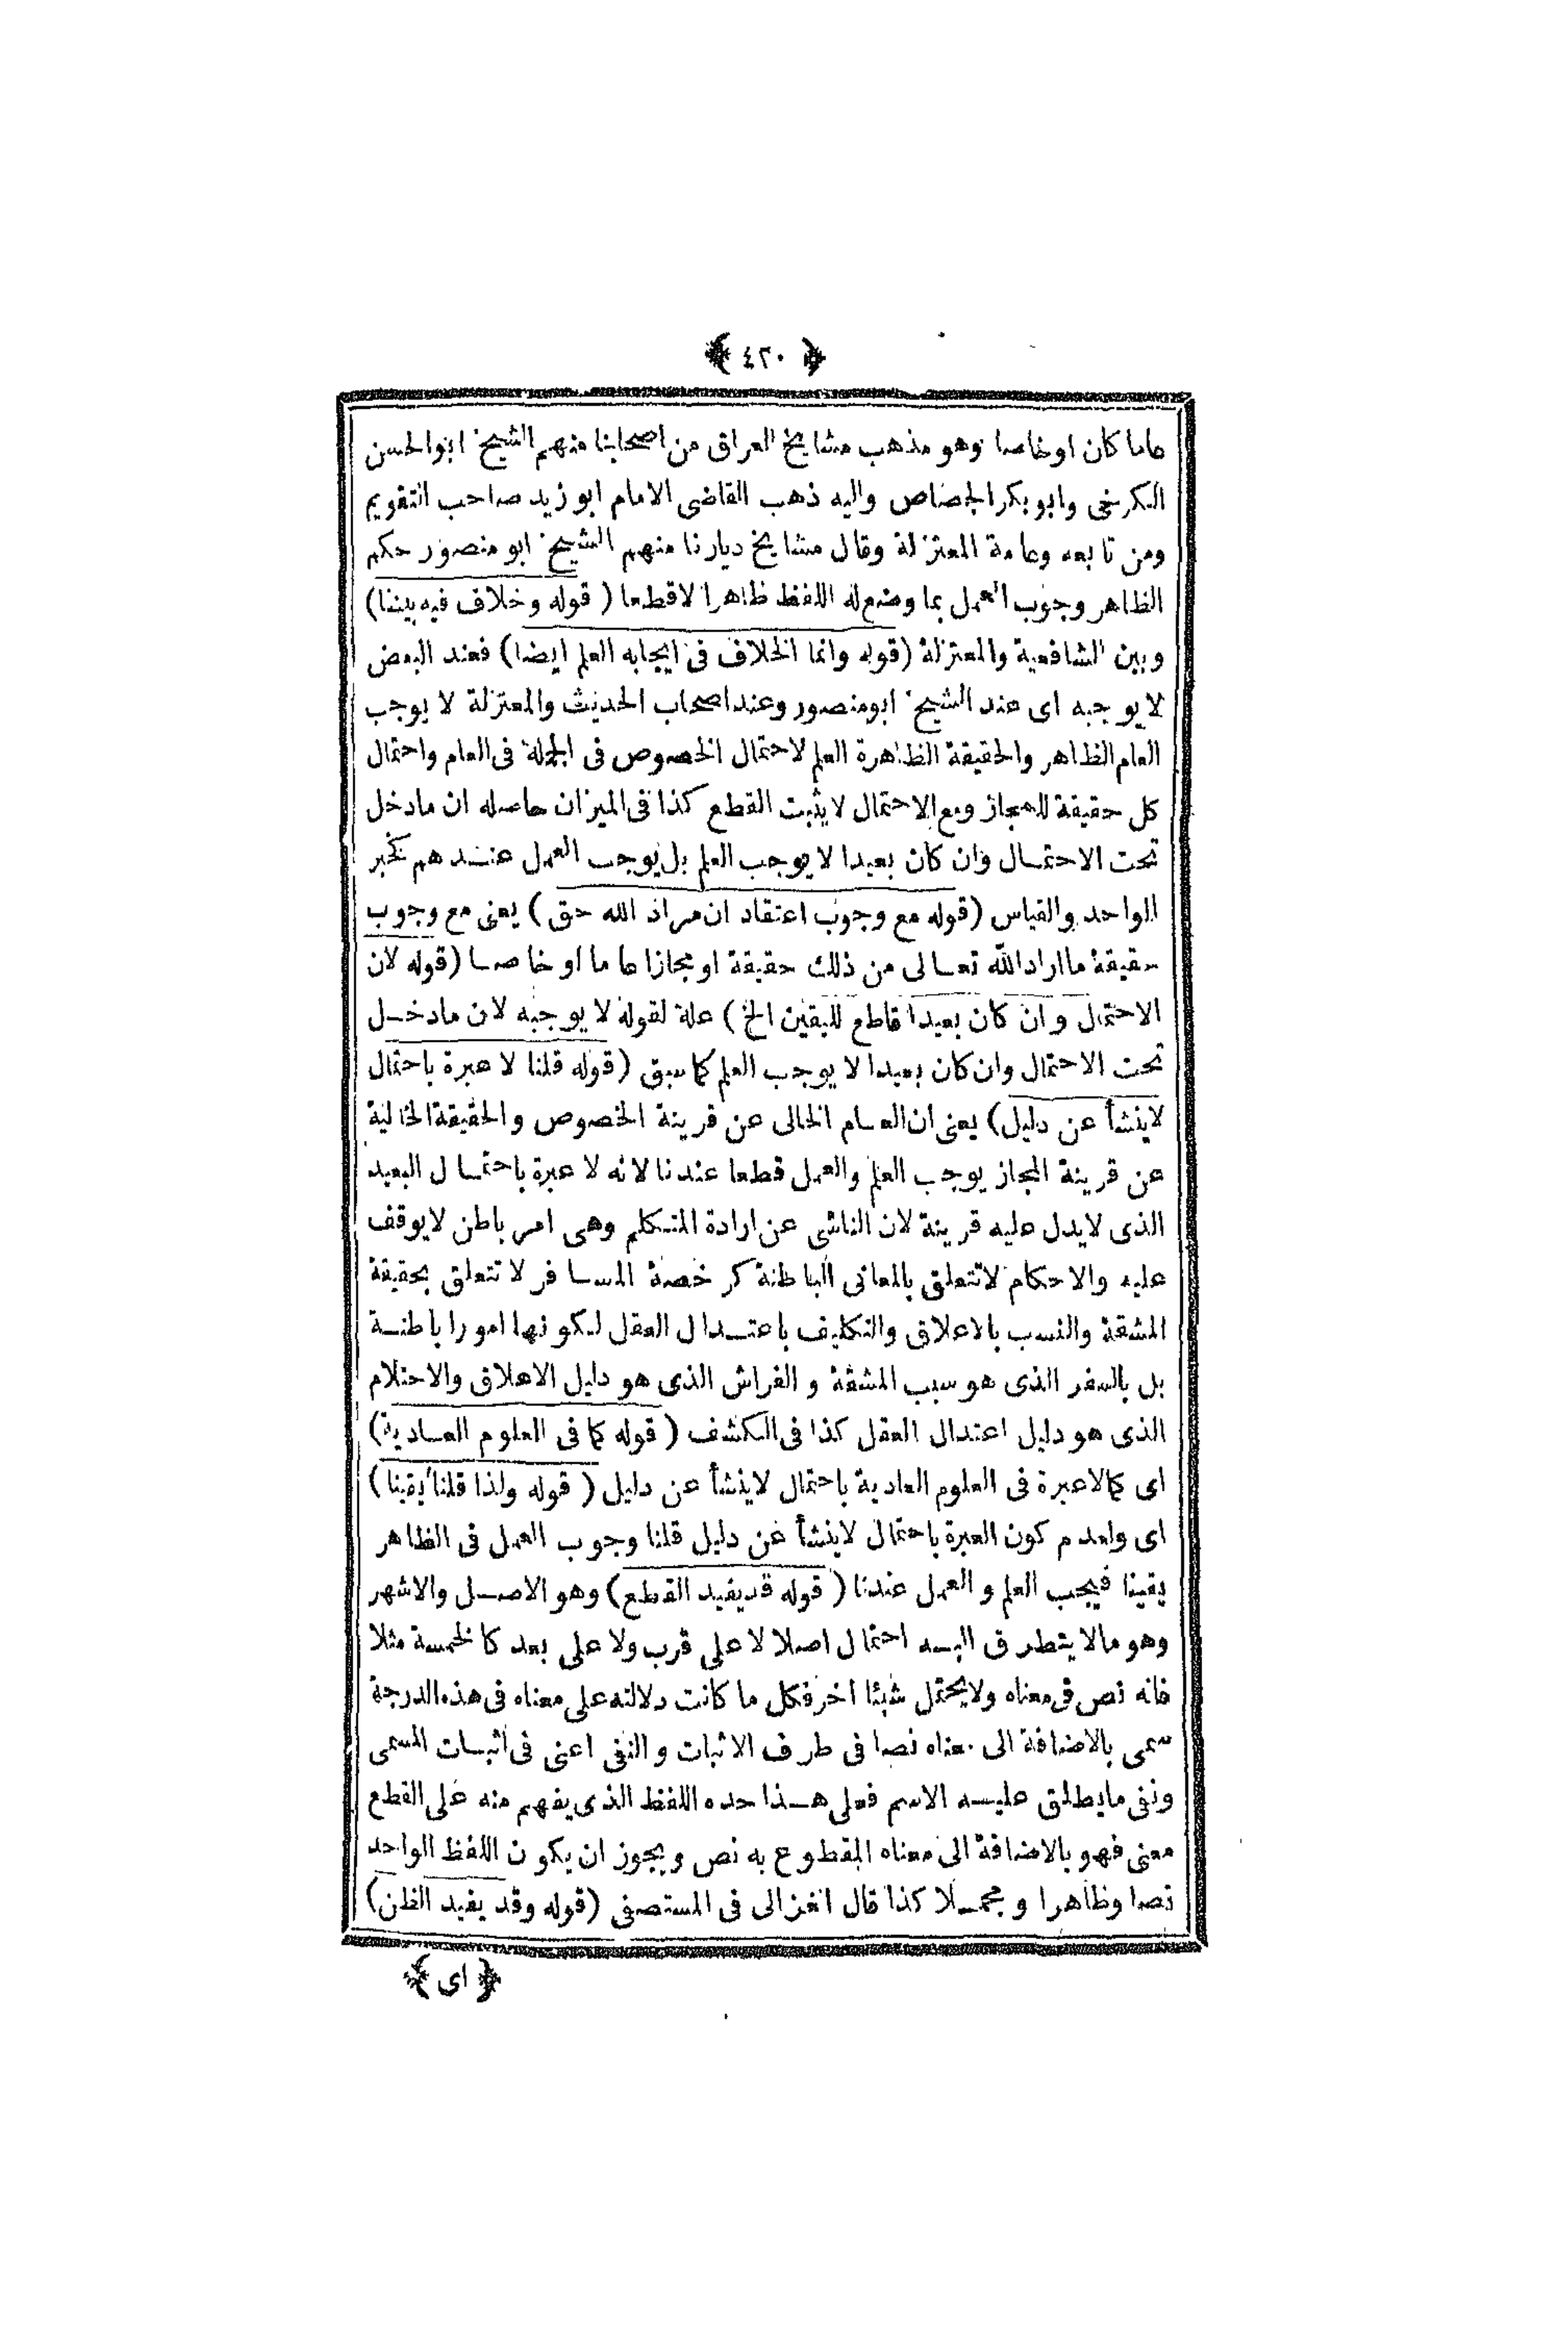 ﴿ ٤٢٠ ﴾
عاما كان او خاصا وهو مذهب مشايخ العراق من اصحابنا منهم الشيخ ابوالحسن
الكرخى وابو بكر الجصاص واليه ذهب القاضى الامام ابو زيد صاحب التقويم
ومن تابعه وعامة المعتزلة وقال مشايخ ديارنا منهم الشيخ ابو منصور حكم
الظاهر وجوب العمل بما وضع له اللفظ ظاهرا لاقطعا ( قوله وخلاف فيه بيننا)
وبين الشافعية والمعتزلة (قوله وانما الخلاف فى ايجابه العلم ايضا) فعند البعض
لا يوجبه اى عند الشيخ ابومنصور وعند اصحاب الحديث والمعتزلة لا يوجب
العام الظاهر والحقيقة الظاهرة العلم لاحتمال الخصوص فى الجملة فى العام واحتمال
كل حقيقة للمجاز ومع الاحتمال لا يثبت القطع كذا فى الميزان حاصله ان مادخل
تحت الاحتمال وان كان بعيدا لا يوجب العلم بل يوجب العمل عندهم كخبر
الواحد والقياس (قوله مع وجوب اعتقاد ان مراد الله حق ) يعنى مع وجوب
حقيقة ما اراد الله تعالى من ذلك حقيقة او مجازا عاما او خاصا (قوله لان
الاحتمال وان كان بعيدا قاطع لليقين الخ ) علة لقوله لا يوجبه لان مادخل
تحت الاحتمال وان كان بعيدا لا يوجب العلم كما سبق (قوله قلنا لا عبرة باحتمال
لاينشأ عن دليل) يعنى ان العام الخالى عن قرينة الخصوص والحقيقة الخالية
عن قرينة المجاز يوجب العلم والعمل قطعا عندنا لانه لا عبرة باحتمال البعيد
الذى لايدل عليه قرينة لان الناشى عن ارادة المتكلم وهى امر باطن لايوقف
عليه والاحكام لاتتعلق بالمعانى الباطنة كرخصة المسافر لا تتعلق بحقيقة
المشقة والنسب بالاعلاق والتكليف باعتدال العقل لكونها امورا باطنة
بل بالسفر الذى هو سبب المشقة و الفراش الذى هو دليل الاعلاق والاحتلام
الذى هو دليل اعتدال العقل كذا فى الكشف ( قوله كما فى العلوم العادية)
اى كما لاعبرة فى العلوم العادية باحتمال لاينشأ عن دليل ( قوله ولذا قلنا يقينا )
اى ولعدم كون العبرة باحتمال لاينشأ عن دليل قلنا وجوب العمل فى الظاهر
يقينا فيجب العلم و العمل عندنا ( قوله قديفيد القطع) وهو الاصل والاشهر
وهو مالا يتطرق اليه احتمال اصلا لا على قرب ولا على بعد كالخمسة مثلا
فانه نص فى معناه ولايحتمل شيئا اخر فكل ما كانت دلالته على معناه فى هذه الدرجة
سمى بالاضافة الى معناه نصا فى طرف الاثبات و النفى اعنى فى اثبات المسمى
ونفى مايطلق عليه الاسم فعلى هذا حده اللفظ الذى يفهم منه على القطع
معنى فهو بالاضافة الى معناه المقطوع به نص ويجوز ان يكون اللفظ الواحد
نصا وظاهرا و مجملا كذا قال الغزالى فى المستصفى (قوله وقد يفيد الظن)
﴿ اى ﴾